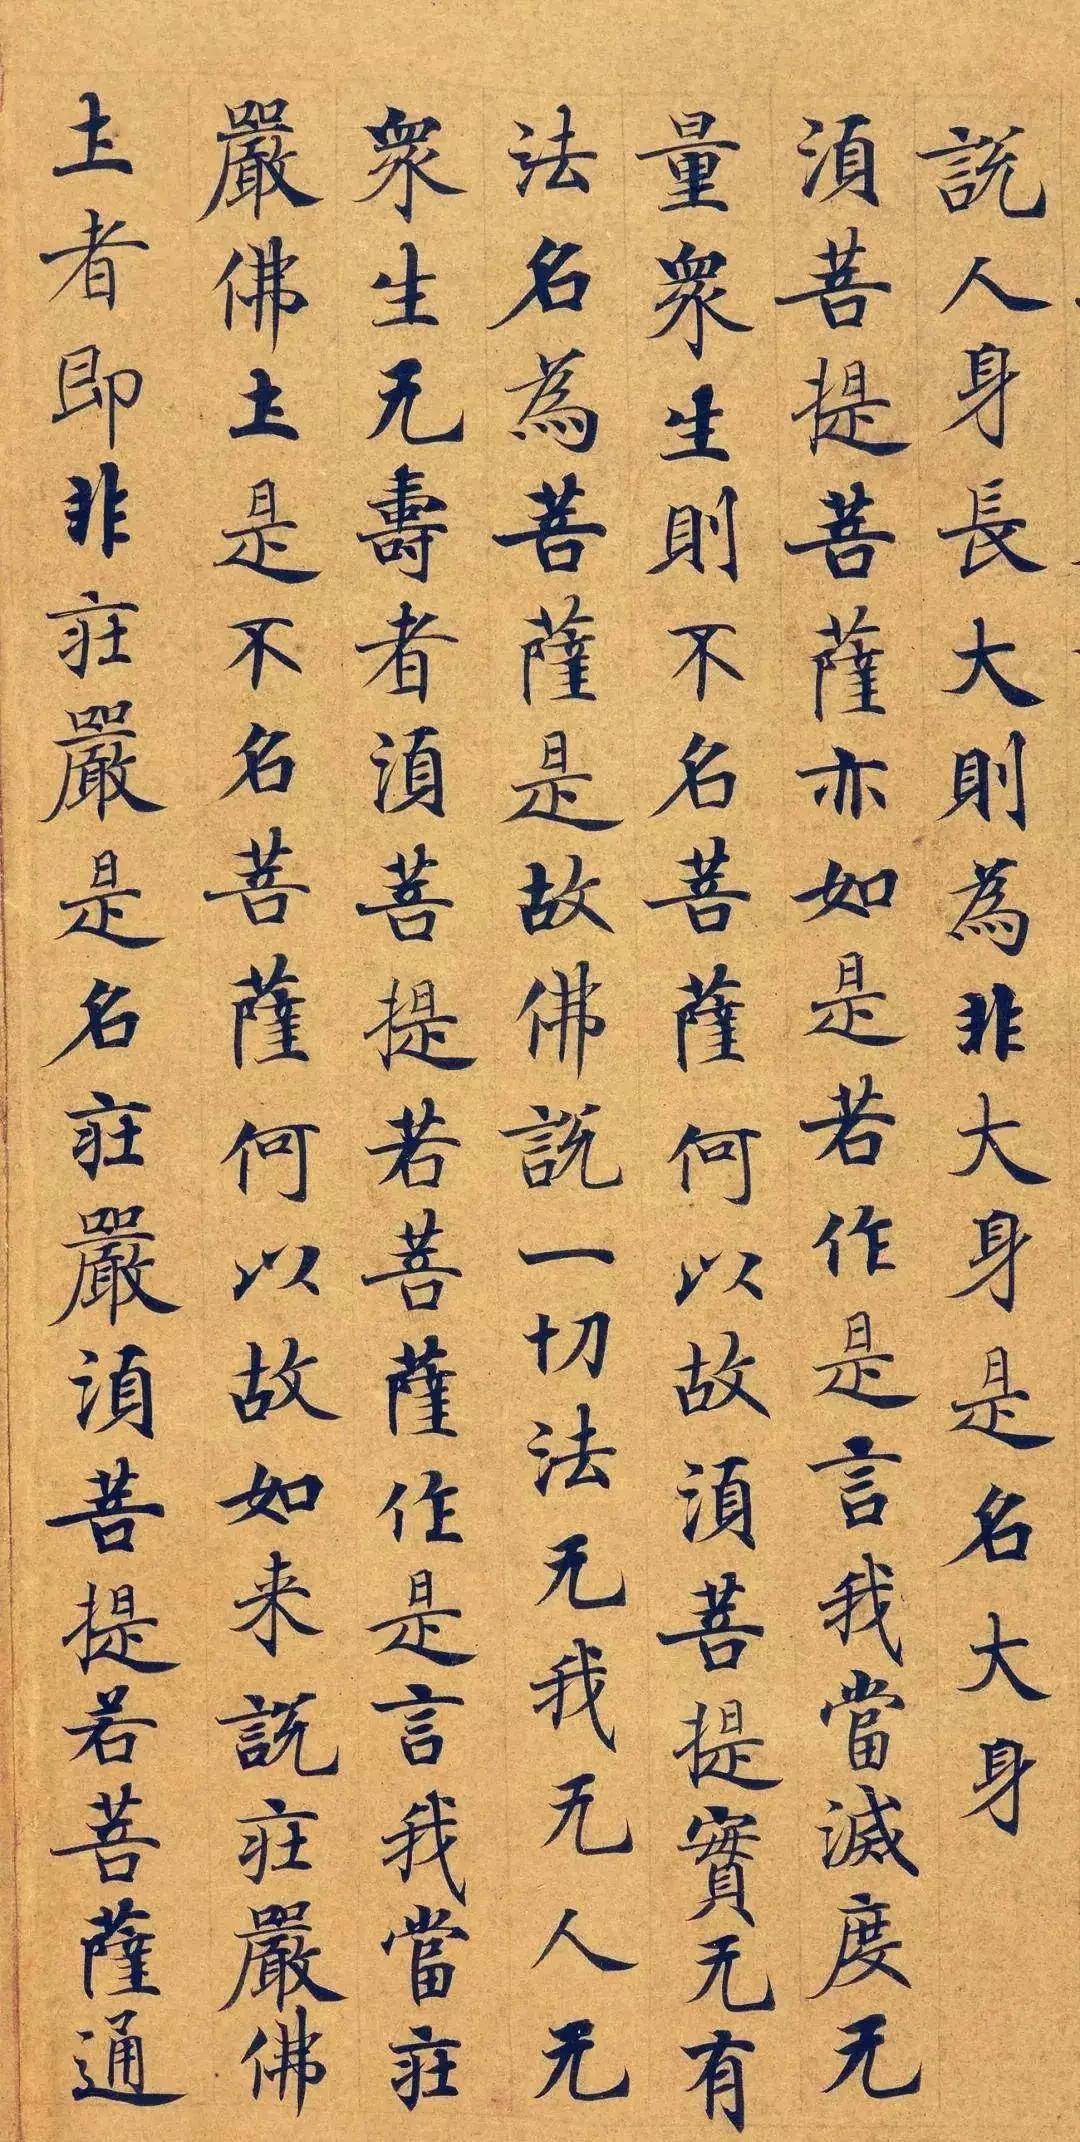 説人身長大則為非大身是名大身
湏菩提菩薩亦如是若作是言我當滅度无
量衆生則不名菩薩何以故湏菩提實无有
法名為菩薩是故佛説一切法无我无人无
衆生无壽者湏菩提若菩薩作是言我當莊
嚴佛土是不名菩薩何以故如来説莊嚴佛
土者即非莊嚴是名莊嚴湏菩提若菩薩通